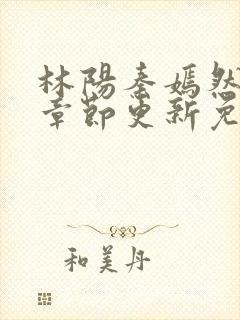 林陽秦嫣然
章節更新免
和美丹